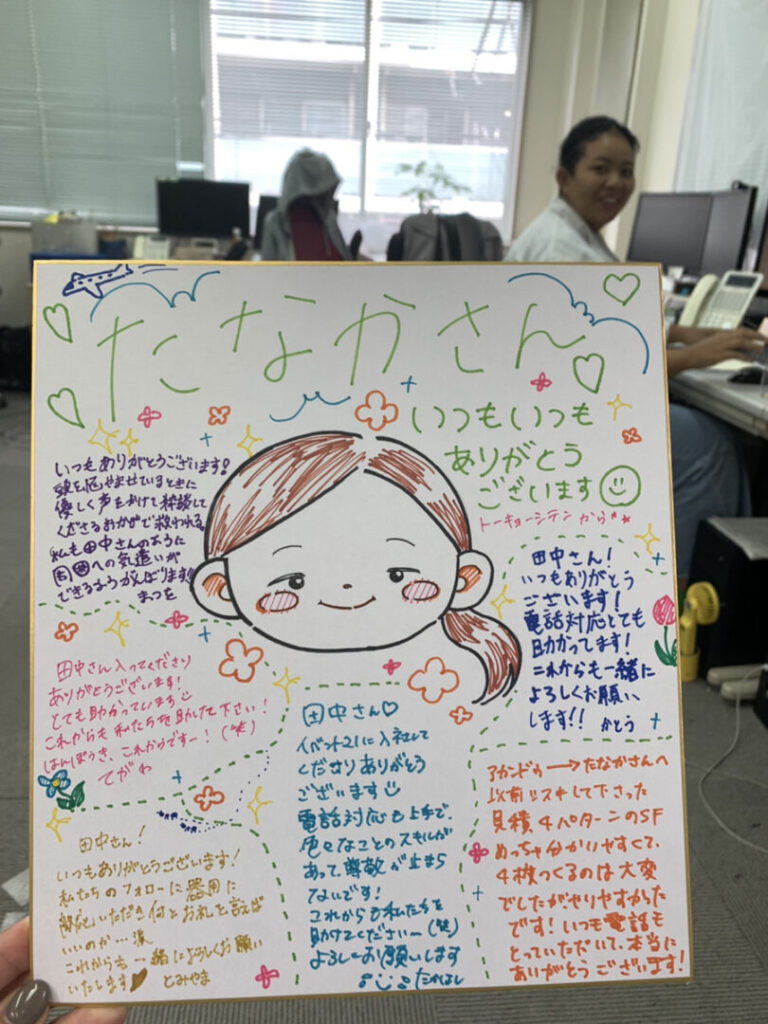 たなかさん
いつもいつも
ありがとう
ございます
トーキョーシテンから
いつもありがとうございます!
頭を悩ませているときに
優しく声をかけて相談して
くださるおかげで救われる。
私も田中さんのように
周囲への気遣いが
できるようがんばります!!
まつを
田中さん!
いつもありがとう
ございます!
電話対応とても
助かってます!
これからも一緒に
よろしくお願い
します!! かとう
田中さん入ってくださり
ありがとうございます!
とても助かっています
これからも私たちを助けて下さい!
はんぼうき、これからですー!(笑)
てがわ
田中さん♡
イベント21に入社して
くださりありがとう
ございます
電話対応も上手で、
色々なことのスキルが
あって尊敬が止まら
ないです!
これからも私たちを
助けてくださいー(笑)
よろしくお願いします
たかはし
アカンドゥ→たなかさんへ
以前リスキして下さった
見積、4パターンのSF
めっちゃ分かりやすくて、
4枚つくるのは大変
でしたがやりやすかった
です!いつも電話も
とっていただいて、本当に
ありがとうございます!
田中さん!
いつもありがとうございます!
私たちのフォローに器用に
対応いただき何とお礼を言えば
いいのか…涙
これからも一緒によろしくお願い
いたします とみやま